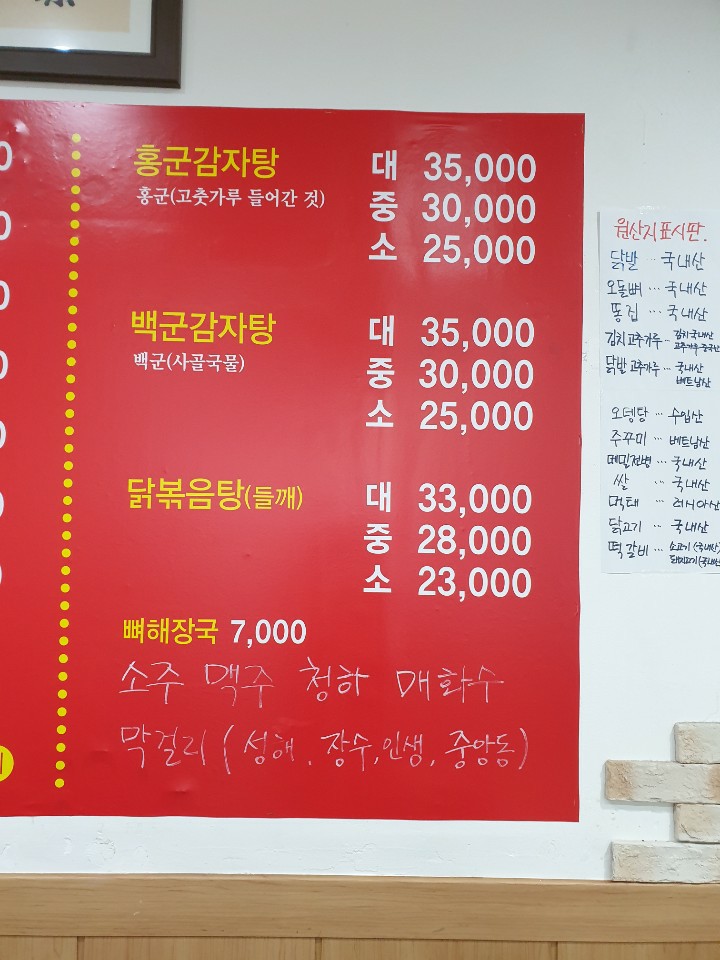 홍군감자탕 대 35,000
홍군(고춧가루 들어간 것) 중 30,000
소 25,000
백군감자탕 대 35,000
백군(사골국물) 중 30,000
소 25,000
닭볶음탕(들깨) 대 33,000
중 28,000
소 23,000
뼈해장국 7,000
소주 맥주 청하 매화수
막걸리 (성해, 장수, 인생, 중앙동)
원산지표시판.
닭발 ··· 국내산
오돌뼈 ··· 국내산
똥집 ··· 국내산
김치고추가루 ··· 김치국내산
고추가루중국산
닭발고추가루 ··· 국내산
베트남산
오뎅탕 ··· 수입산
주꾸미 ··· 베트남산
메밀전병 ··· 국내산
쌀 ··· 국내산
먹태 ··· 러시아산
닭고기 ··· 국내산
떡갈비 ··· 소고기(국내산)
돼지고기(국내산